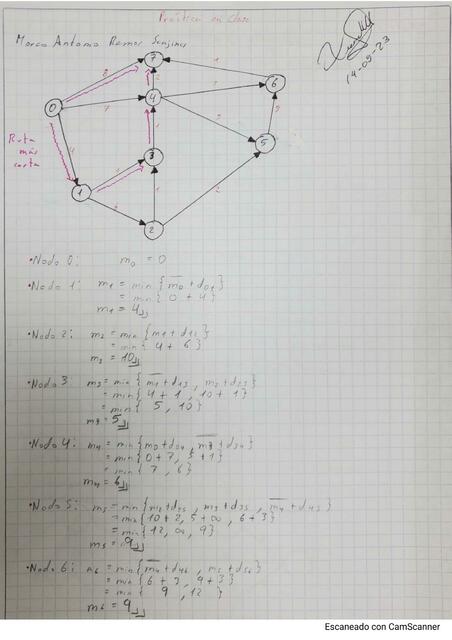 Práctica en Clase
Marco Antonio Ramos
14-09-23
8
7
4
1
6
1
2
1
Ruta
más
corta
0
1
2
3
4
5
6
7
•Nodo 0: m0 = 0
•Nodo 1: m1 = min {m0 + d01}
= min {0 + 4}
m1 = 4
•Nodo 2: m2 = min {m1 + d12}
= min {4 + 6}
m2 = 10
•Nodo 3 m3 = min {m1 + d13, m2 + d23}
= min {4 + 1, 10 + 1}
= min {5, 10}
m3 = 5
•Nodo 4: m4 = min {m0 + d04, m3 + d34}
= min {0 + 7, 5 + 1}
= min {7, 6}
m4 = 6
•Nodo 5: m5 = min {m2 + d25, m3 + d35, m4 + d45}
= min {10 + 2, 5 + ∞, 6 + 3}
= min {12, ∞, 9}
m5 = 9
•Nodo 6: m6 = min {m4 + d46, m5 + d56}
= min {6 + 3, 9 + 3}
= min {9, 12}
m6 = 9
Escaneado con CamScanner